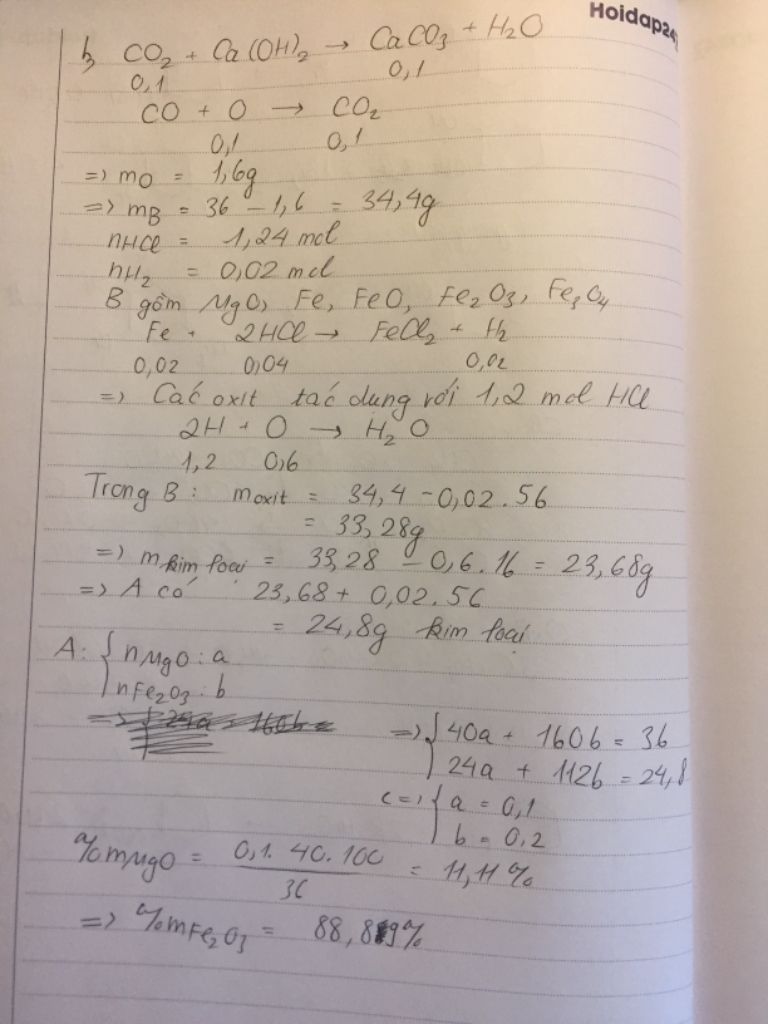 Hoidap24
b, CO₂ + Ca(OH)₂ → CaCO₃ + H₂O
0,1 0,1
CO + O → CO₂
0,1 0,1
=> mO = 1,6g
=> mB = 36 - 1,6 = 34,4g
nHCl = 1,24 mol
nH₂ = 0,02 mol
B gồm MgO, Fe, FeO, Fe₂O₃, Fe₃O₄
Fe + 2HCl → FeCl₂ + H₂
0,02 0,04 0,02
=> Các oxit tác dụng với 1,2 mol HCl
2H + O → H₂O
1,2 0,6
Trong B : m oxit = 34,4 - 0,02 . 56
= 33,28g
=> m kim loại = 33,28 - 0,6 . 16 = 23,68g
=> A có 23,68 + 0,02 . 56
= 24,8g kim loại
A: { nMgO : a
nFe₂O₃ : b
=> { 40a + 160b = 36
24a + 112b = 24,8
<=> { a = 0,1
b = 0,2
%mMgO = 0,1 . 40 . 100 / 36 = 11,11%
=> %mFe₂O₃ = 88,89%